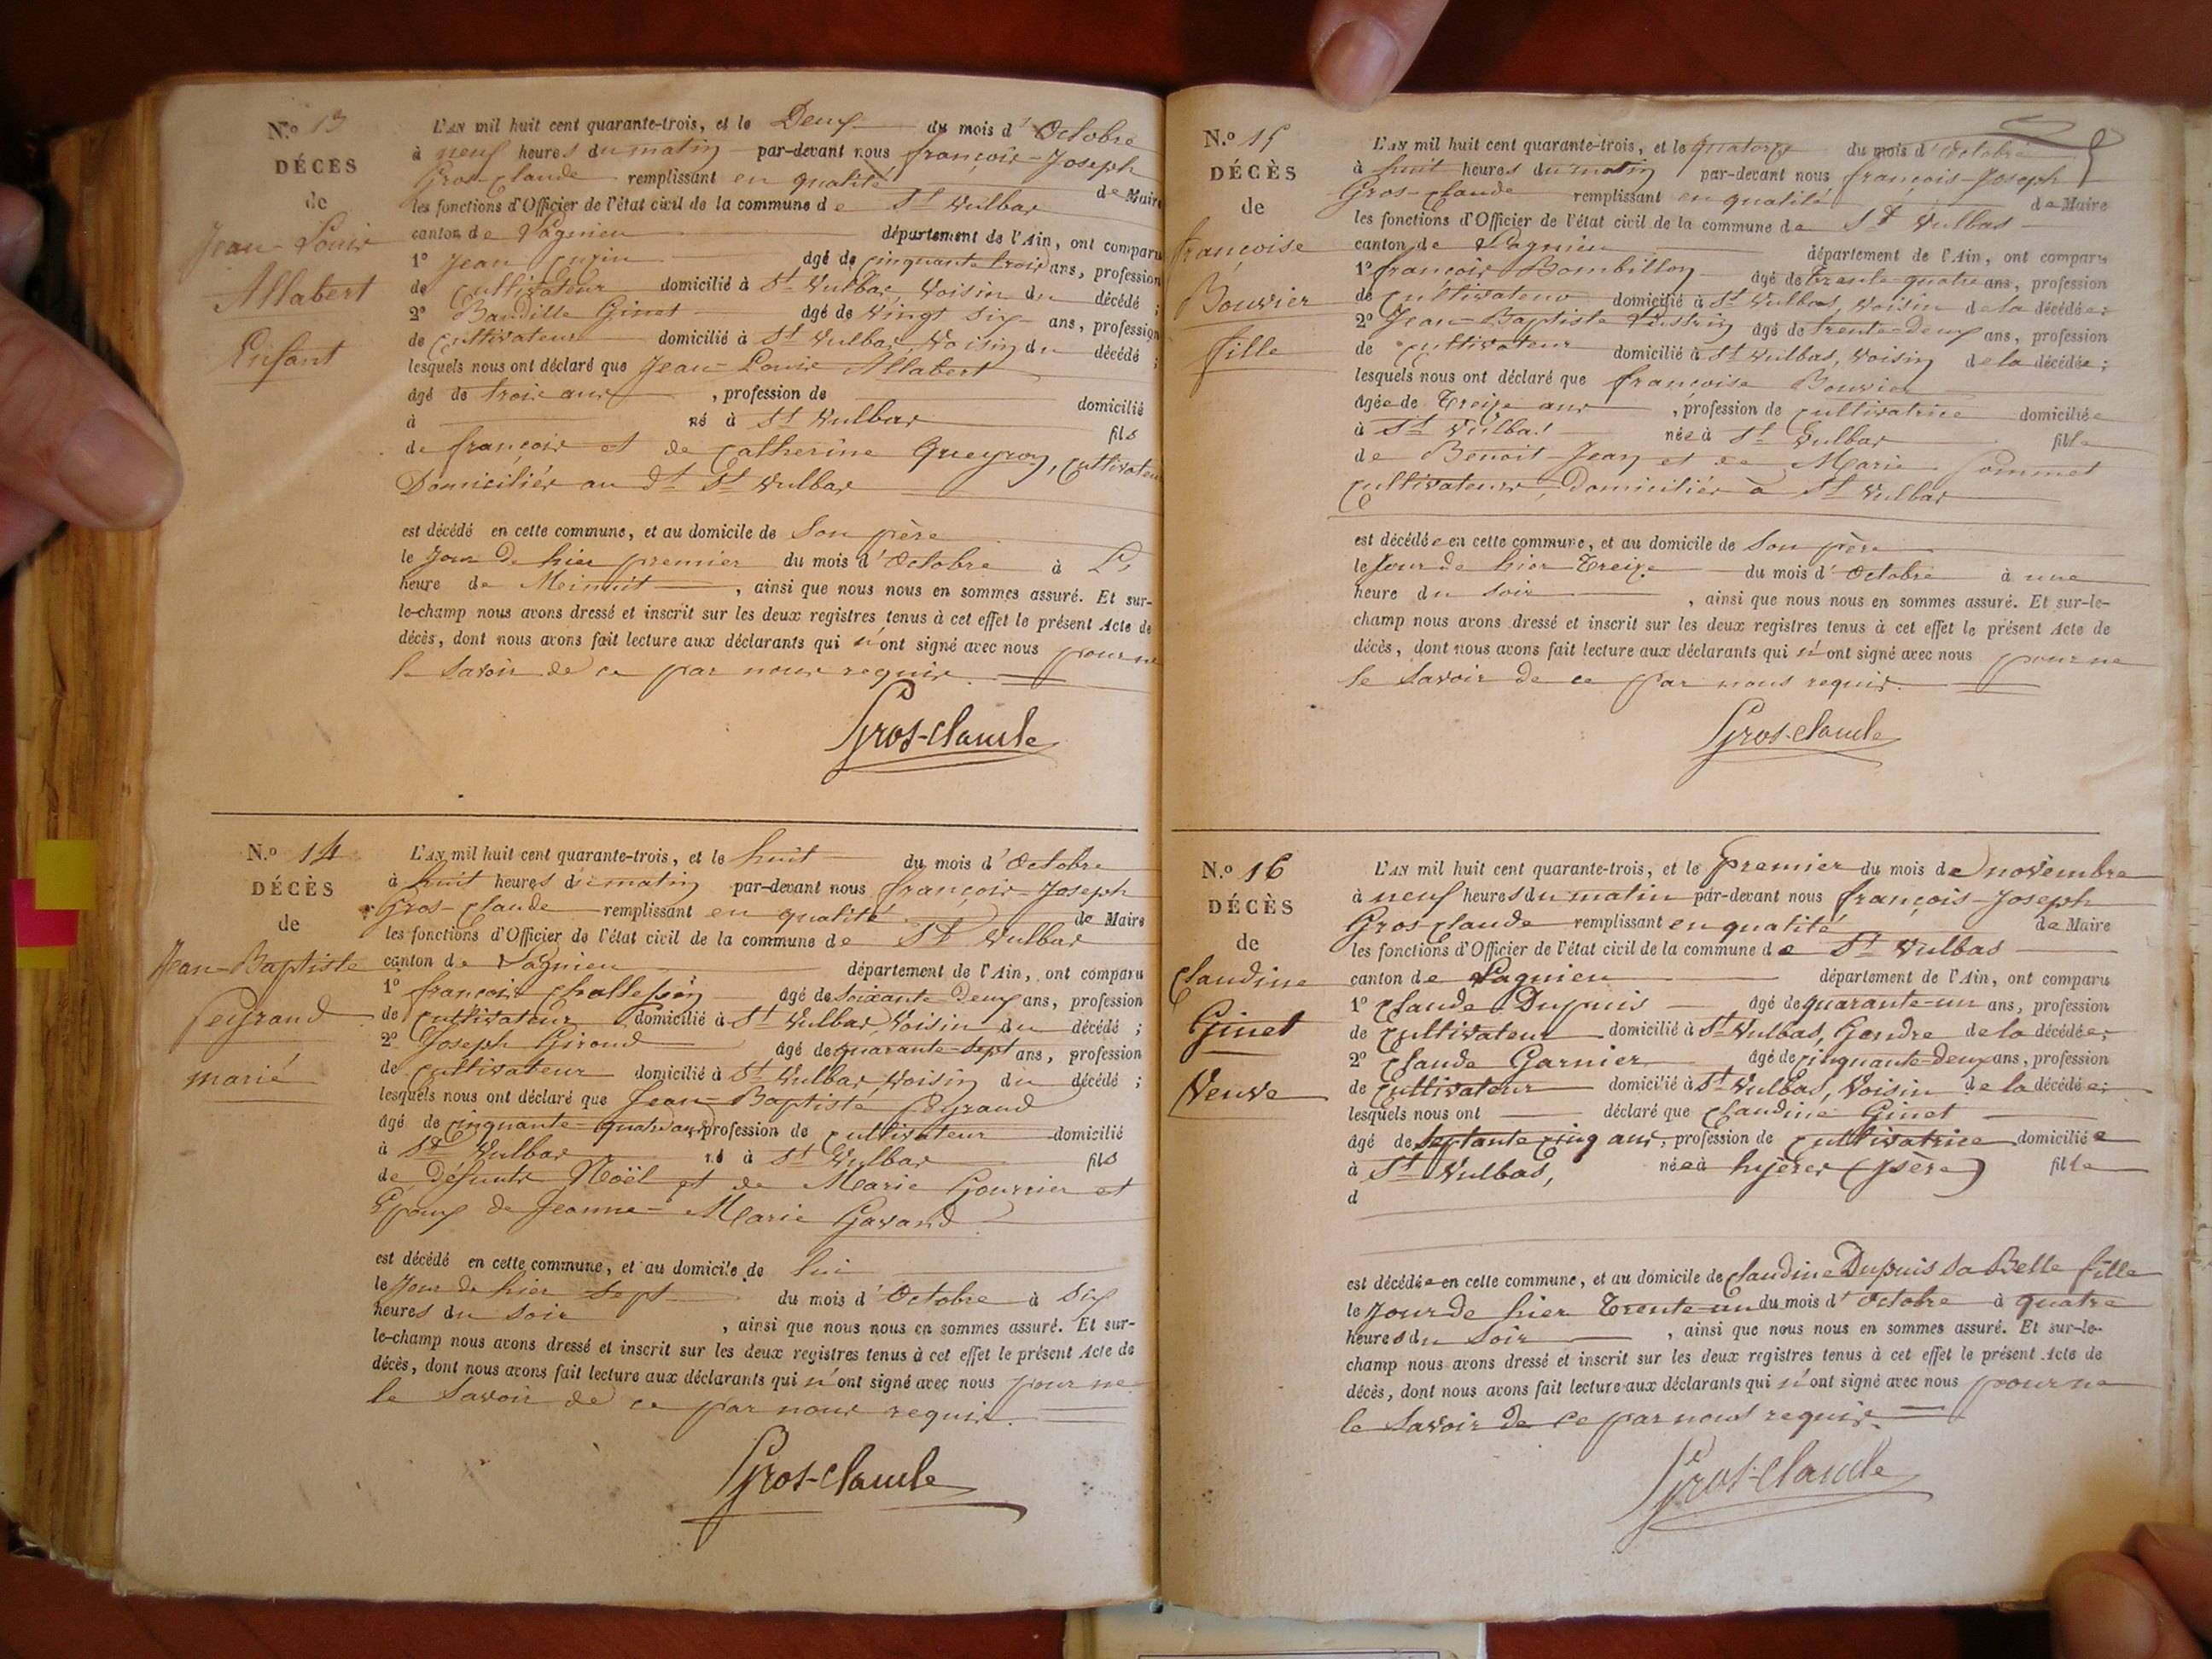 N.º 13
DÉCÈS
de
Jean-Louis
Allabert
Enfant
L'AN mil huit cent quarante-trois, et le Deux du mois d'Octobre
à neuf heures du matin par-devant nous françois-Joseph
Gros-Claude remplissant en qualité de Maire
les fonctions d'Officier de l'état civil de la commune de St Vulbas
canton de Lagnieu département de l'Ain, ont comparu
1º Jean âgé de cinquante trois ans, profession
de Cultivateur domicilié à St Vulbas Voisin du décédé ;
2º Baudille Ginet âgé de Vingt Six ans, profession
de Cultivateur domicilié à St Vulbas Voisin du décédé ;
lesquels nous ont déclaré que Jean-Louis Allabert
âgé de trois ans , profession de domicilié
à né à St Vulbas fils
de françois et de Catherine Queyron, Cultivateurs
Domiciliés au dt St Vulbas
est décédé en cette commune, et au domicile de Son père
le Jour de hier premier du mois d'Octobre à L'
heure de Meinuit , ainsi que nous nous en sommes assuré. Et sur-
le-champ nous avons dressé et inscrit sur les deux registres tenus à cet effet le présent Acte de
décès, dont nous avons fait lecture aux déclarants qui n'ont signé avec nous pour ne
le Savoir de ce par nous requis.
Gros-Claude
N.º 14
DÉCÈS
de
Jean-Baptiste
Peyraud
marié
L'AN mil huit cent quarante-trois, et le huit du mois d'Octobre
à huit heures du matin par-devant nous françois-Joseph
Gros-Claude remplissant en qualité de Maire
les fonctions d'Officier de l'état civil de la commune de St Vulbas
canton de Lagnieu département de l'Ain, ont comparu
1º françois âgé de Soixante Deux ans, profession
de Cultivateur domicilié à St Vulbas, Voisin du décédé ;
2º Joseph Giroud âgé de quarante-sept ans, profession
de Cultivateur domicilié à St Vulbas, Voisin du décédé ;
lesquels nous ont déclaré que Jean-Baptiste Peyraud
âgé de cinquante-quatre ans, profession de Cultivateur domicilié
à St Vulbas né à St Vulbas fils
de Défunts Noël et de Marie Gourrier et
Epoux de Jeanne-Marie Gavand
est décédé en cette commune, et au domicile de lui
le Jour de hier Sept du mois d'Octobre à Six
heures du Soir , ainsi que nous nous en sommes assuré. Et sur-
le-champ nous avons dressé et inscrit sur les deux registres tenus à cet effet le présent Acte de
décès, dont nous avons fait lecture aux déclarants qui n'ont signé avec nous pour ne
le Savoir de ce par nous requis.
Gros-Claude
N.º 15
DÉCÈS
de
françoise
Bouvier
fille
L'AN mil huit cent quarante-trois, et le quatorze du mois d'Octobre
à huit heures du matin par-devant nous françois-Joseph
Gros-Claude remplissant en qualité de Maire
les fonctions d'Officier de l'état civil de la commune de St Vulbas
canton de Lagnieu département de l'Ain, ont comparu
1º françois Bombillon âgé de Trente-quatre ans, profession
de Cultivateur domicilié à St Vulbas, Voisin de la décédée ;
2º Jean-Baptiste âgé de trente-deux ans, profession
de Cultivateur domicilié à St Vulbas, Voisin de la décédée ;
lesquels nous ont déclaré que françoise Bouvier
âgée de Treize ans , profession de Cultivatrice domiciliée
à St Vulbas née à St Vulbas fille
de Benoit-Jean et de Marie Pommet
Cultivateurs, Domiciliés à St Vulbas
est décédée en cette commune, et au domicile de Son père
le Jour de hier Treize du mois d'Octobre à une
heure du Soir , ainsi que nous nous en sommes assuré. Et sur-le-
champ nous avons dressé et inscrit sur les deux registres tenus à cet effet le présent Acte de
décès, dont nous avons fait lecture aux déclarants qui n'ont signé avec nous pour ne
le Savoir de ce par nous requis.
Gros-Claude
N.º 16
DÉCÈS
de
Claudine
Ginet
Veuve
L'AN mil huit cent quarante-trois, et le Premier du mois de novembre
à neuf heures du matin par-devant nous françois-Joseph
Gros Claude remplissant en qualité de Maire
les fonctions d'Officier de l'état civil de la commune de St Vulbas
canton de Lagnieu département de l'Ain, ont comparu
1º Claude Dupuis âgé de quarante-un ans, profession
de Cultivateur domicilié à St Vulbas, Gendre de la décédée ;
2º Claude Garnier âgé de cinquante-deux ans, profession
de Cultivateur domicilié à St Vulbas, Voisin de la décédée ;
lesquels nous ont déclaré que Claudine Ginet
âgé de Septante cinq ans, profession de Cultivatrice domiciliée
à St Vulbas, née à hyères (Isère) fille
d
est décédée en cette commune, et au domicile de Claudine Dupuis sa Belle fille
le Jour de hier Trente-un du mois d'Octobre à quatre
heures du Soir , ainsi que nous nous en sommes assuré. Et sur-le-
champ nous avons dressé et inscrit sur les deux registres tenus à cet effet le présent Acte de
décès, dont nous avons fait lecture aux déclarants qui n'ont signé avec nous pour ne
le Savoir de ce par nous requis.
Gros-Claude